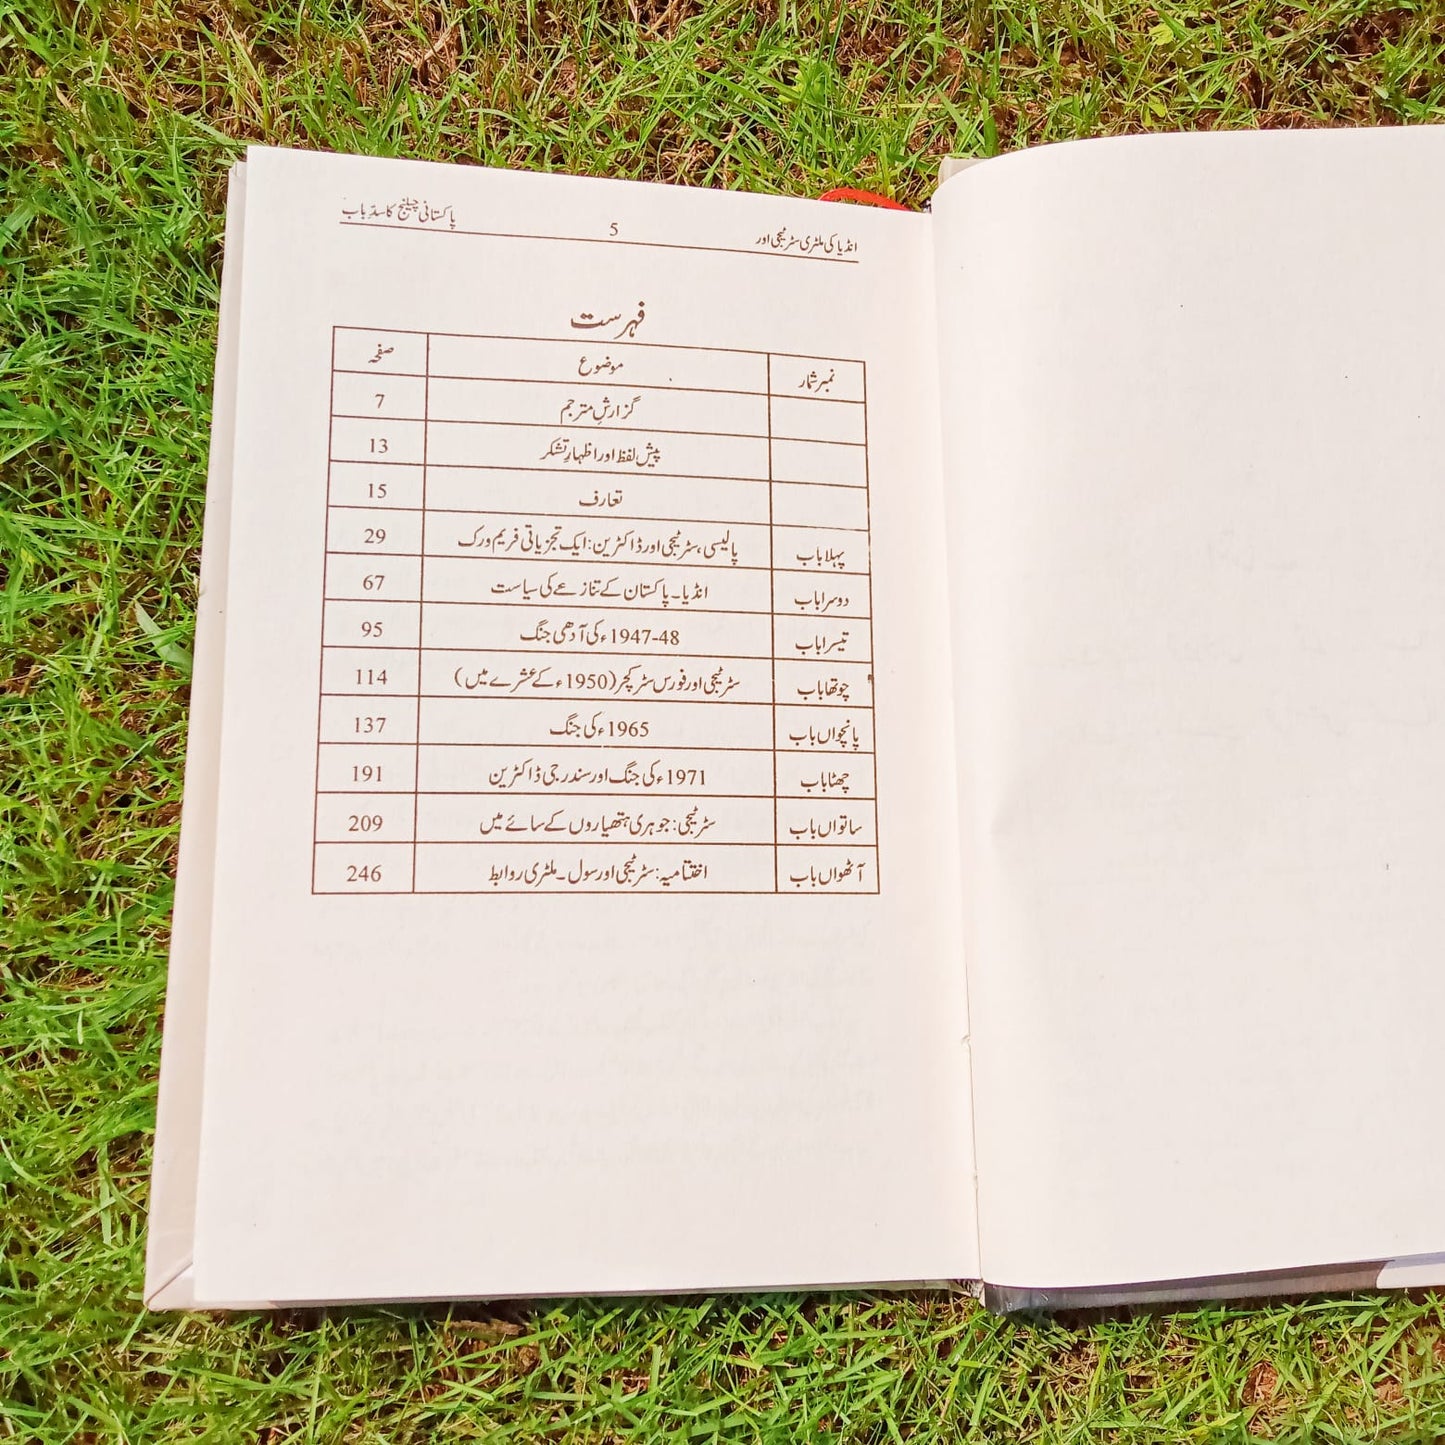 انڈیا کی ملٹری سٹریٹجی اور 5 پاکستانی چیلنج کا سدِّ باب
فہرست
نمبر شمار موضوع صفحہ
گزارشِ مترجم 7
پیش لفظ اور اظہارِ تشکر 13
تعارف 15
پہلا باب پالیسی، سٹریٹجی اور ڈاکٹرین: ایک تجزیاتی فریم ورک 29
دوسرا باب انڈیا۔ پاکستان کے تنازعے کی سیاست 67
تیسرا باب 1947-48ء کی آدھی جنگ 95
چوتھا باب سٹریٹجی اور فورس سٹرکچر (1950ء کے عشرے میں) 114
پانچواں باب 1965ء کی جنگ 137
چھٹا باب 1971ء کی جنگ اور سندر جی ڈاکٹرین 191
ساتواں باب سٹریٹجی: جوہری ہتھیاروں کے سائے میں 209
آٹھواں باب اختتامیہ: سٹریٹجی اور سول۔ ملٹری روابط 246